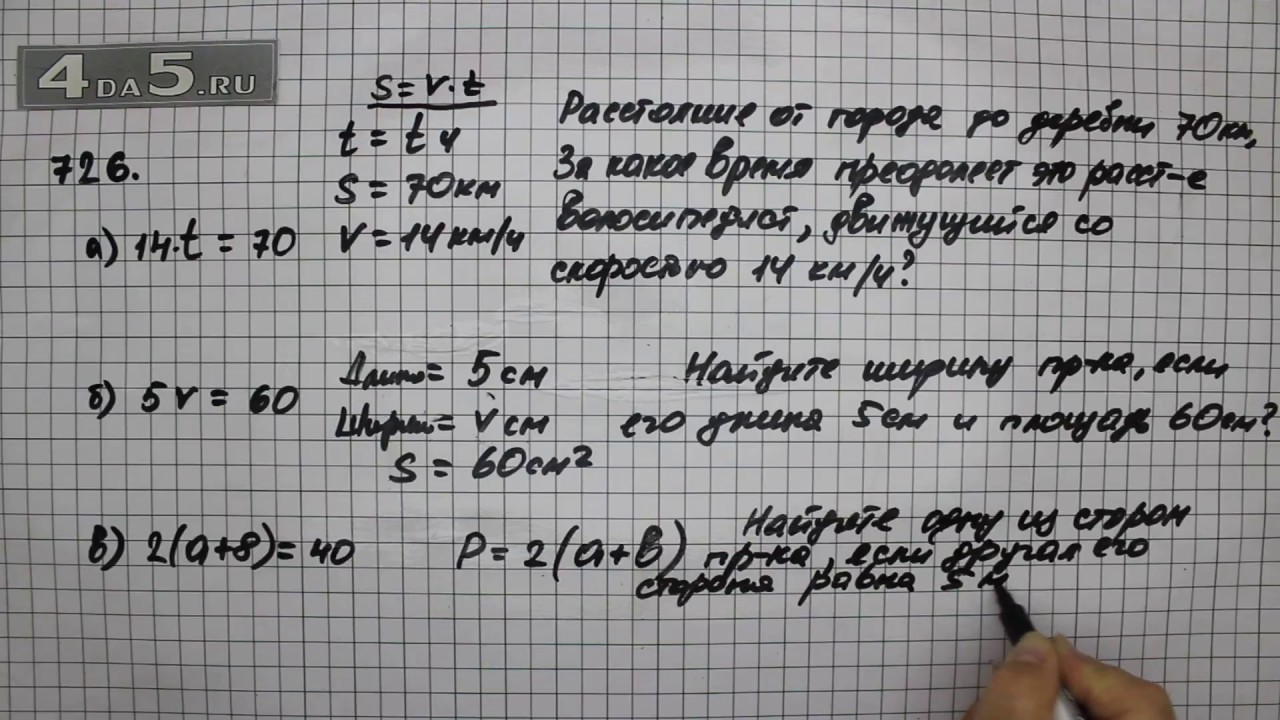 4DA5.RU
726.
S = v·t
t = t ч
S = 70 км
v = 14 км/ч
Расстояние от города до деревни 70 км,
За какое время преодолеет это расст-е
велосипедист, движущийся со
скоростью 14 км/ч?
а) 14·t = 70
б) 5v = 60
Длина = 5 см
Ширина = v см
S = 60 см²
Найдите ширину пр-ка, если
его длина 5 см и площадь 60 см²?
в) 2(a+8) = 40
P = 2(a+b)
Найдите одну из сторон
пр-ка, если другая его
сторона равна 5 м